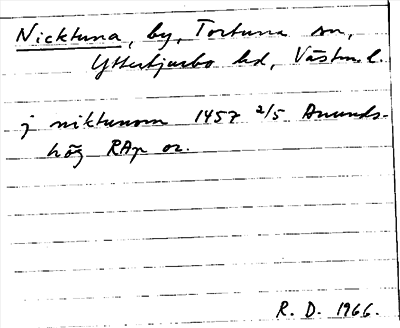 Nicktuna, by, Tortuna sn,
Yttertjurbo hd, Västm. l.
j niktunom 1457 2/5 Anunds-
hög RAp or.
R. D. 1966.